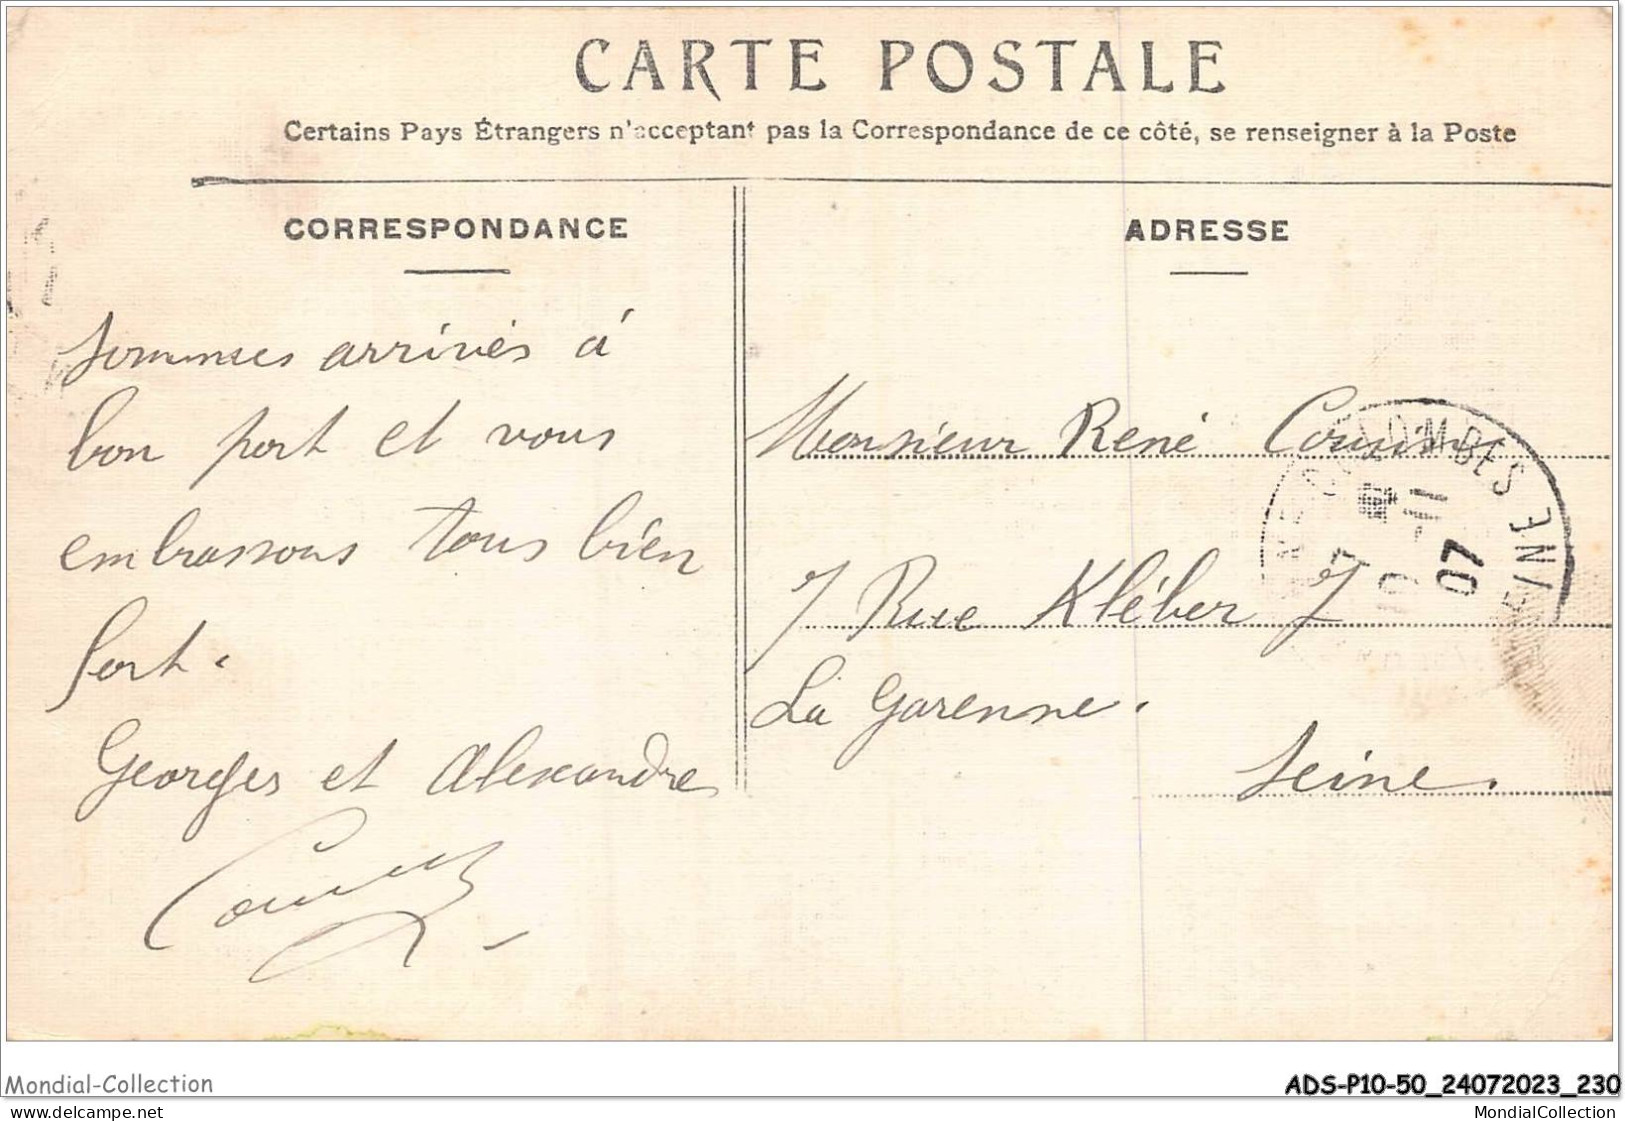 CARTE POSTALE
Certains Pays Étrangers n'acceptant pas la Correspondance de ce côté, se renseigner à la Poste
CORRESPONDANCE
Sommes arrivés à
bon port et vous
embrassons tous bien
fort.
Georges et Alexandre
ADRESSE
Monsieur René
7 Rue Kléber 7
La Garenne.
Seine.
COLOMBES SEINE
11
07
Mondial-Collection
ADS-P10-50_24072023_230
MondialCollection.be
MondialCollection